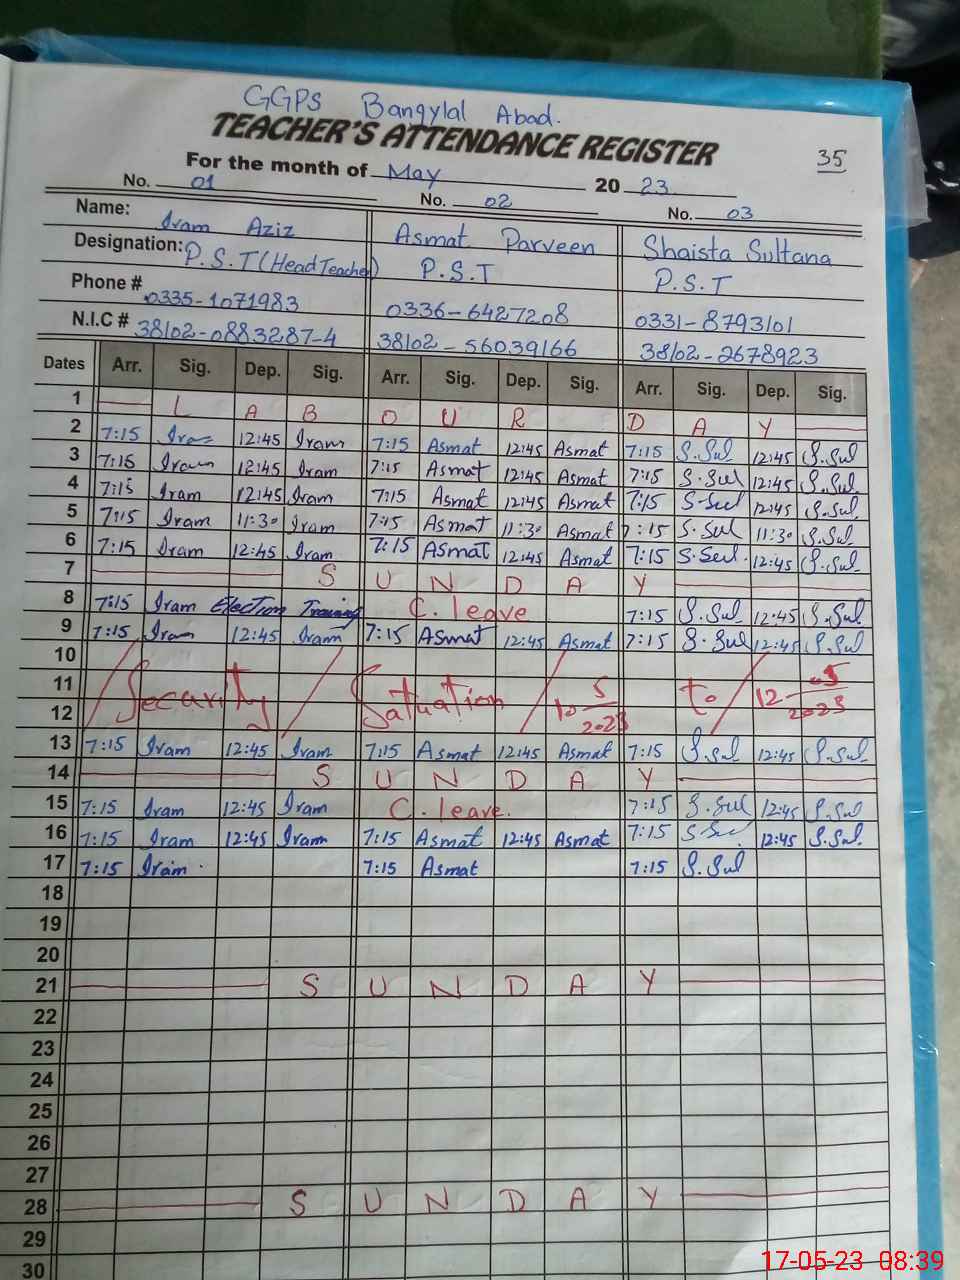 GGPS Bangylal Abad.
TEACHER'S ATTENDANCE REGISTER
35
For the month of May 20 23
No. 01 No. 02 No. 03
Name: Iram Aziz Asmat Parveen Shaista Sultana
Designation: P.S.T (Head Teacher) P.S.T P.S.T
Phone # 0335-1071983 0336-6427208 0331-8793101
N.I.C # 38102-0883287-4 38102-56039166 38102-2678923
Dates Arr. Sig. Dep. Sig. Arr. Sig. Dep. Sig. Arr. Sig. Dep. Sig.
1 L A B O U R D A Y
2 7:15 Iram 12:45 Iram 7:15 Asmat 12:45 Asmat 7:15 S.Sul 12:45 S.Sul
3 7:15 Iram 12:45 Iram 7:15 Asmat 12:45 Asmat 7:15 S.Sul 12:45 S.Sul
4 7:15 Iram 12:45 Iram 7:15 Asmat 12:45 Asmat 7:15 S.Sul 12:45 S.Sul
5 7:15 Iram 11:30 Iram 7:15 Asmat 11:30 Asmat 7:15 S.Sul 11:30 S.Sul
6 7:15 Iram 12:45 Iram 7:15 Asmat 12:45 Asmat 7:15 S.Sul 12:45 S.Sul
7 S U N D A Y
8 7:15 Iram Election Training C. leave 7:15 S.Sul 12:45 S.Sul
9 7:15 Iram 12:45 Iram 7:15 Asmat 12:45 Asmat 7:15 S.Sul 12:45 S.Sul
10
11 Security Satuation 10 5/2023 to 12 05/2023
12
13 7:15 Iram 12:45 Iram 7:15 Asmat 12:45 Asmat 7:15 S.Sul 12:45 S.Sul
14 S U N D A Y
15 7:15 Iram 12:45 Iram C. leave. 7:15 S.Sul 12:45 S.Sul
16 7:15 Iram 12:45 Iram 7:15 Asmat 12:45 Asmat 7:15 S.Sul 12:45 S.Sul
17 7:15 Iram 7:15 Asmat 7:15 S.Sul
18
19
20
21 S U N D A Y
22
23
24
25
26
27
28 S U N D A Y
29
30
17-05-23 08:39